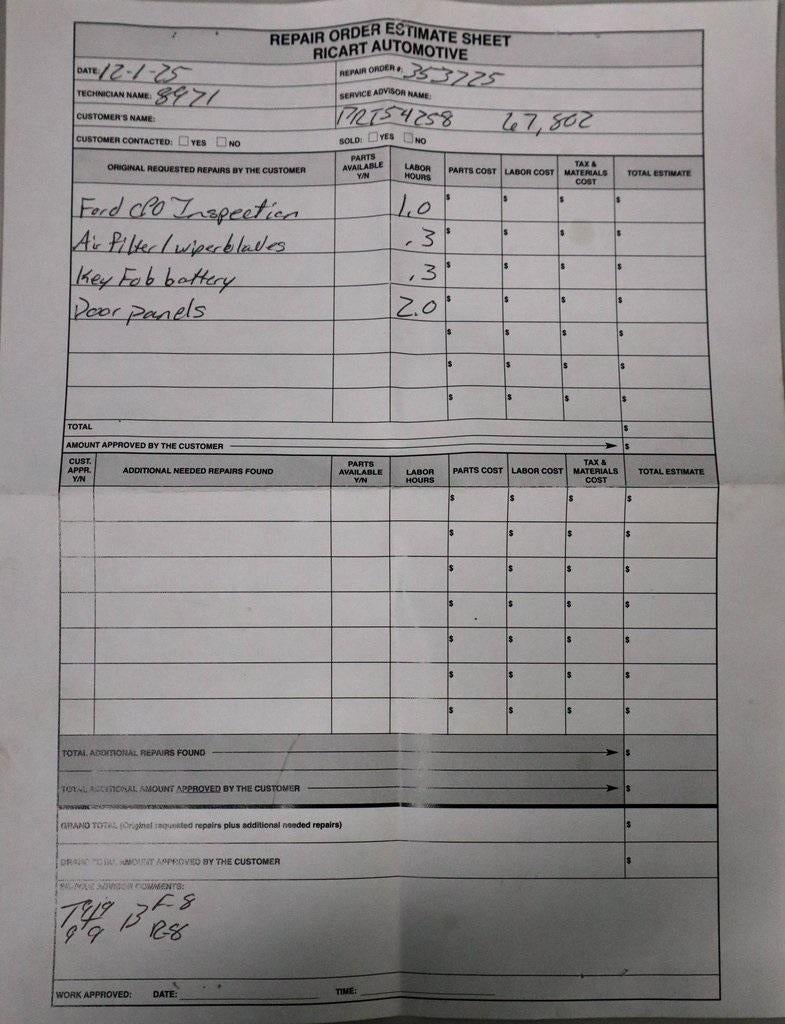 REPAIR ORDER ESTIMATE SHEET
RICART AUTOMOTIVE
DATE: 12-1-25 REPAIR ORDER #: 353725
TECHNICIAN NAME: 8971 SERVICE ADVISOR NAME:
CUSTOMER'S NAME: PRT54258 67,802
CUSTOMER CONTACTED: YES NO SOLD: YES NO
ORIGINAL REQUESTED REPAIRS BY THE CUSTOMER PARTS AVAILABLE Y/N LABOR HOURS PARTS COST LABOR COST TAX & MATERIALS COST TOTAL ESTIMATE
Ford CPO Inspection 1.0 $ $ $ $
Air filter/wiperblades .3 $ $ $ $
Key Fob battery .3 $ $ $ $
Door panels 2.0 $ $ $ $
$ $ $ $
$ $ $ $
$ $ $ $
TOTAL $
AMOUNT APPROVED BY THE CUSTOMER $
CUST. APPR. Y/N ADDITIONAL NEEDED REPAIRS FOUND PARTS AVAILABLE Y/N LABOR HOURS PARTS COST LABOR COST TAX & MATERIALS COST TOTAL ESTIMATE
$ $ $ $
$ $ $ $
$ $ $ $
$ $ $ $
$ $ $ $
$ $ $ $
$ $ $ $
TOTAL ADDITIONAL REPAIRS FOUND $
TOTAL ADDITIONAL AMOUNT APPROVED BY THE CUSTOMER $
GRAND TOTAL (Original requested repairs plus additional needed repairs) $
GRAND TOTAL AMOUNT APPROVED BY THE CUSTOMER $
SERVICE ADVISOR COMMENTS:
T 9/9 B F-8
9 9 R-8
WORK APPROVED: DATE: TIME: